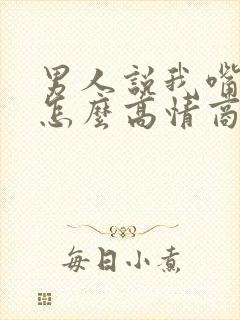 男人說我嘴
怎麼高情商
每日小煮